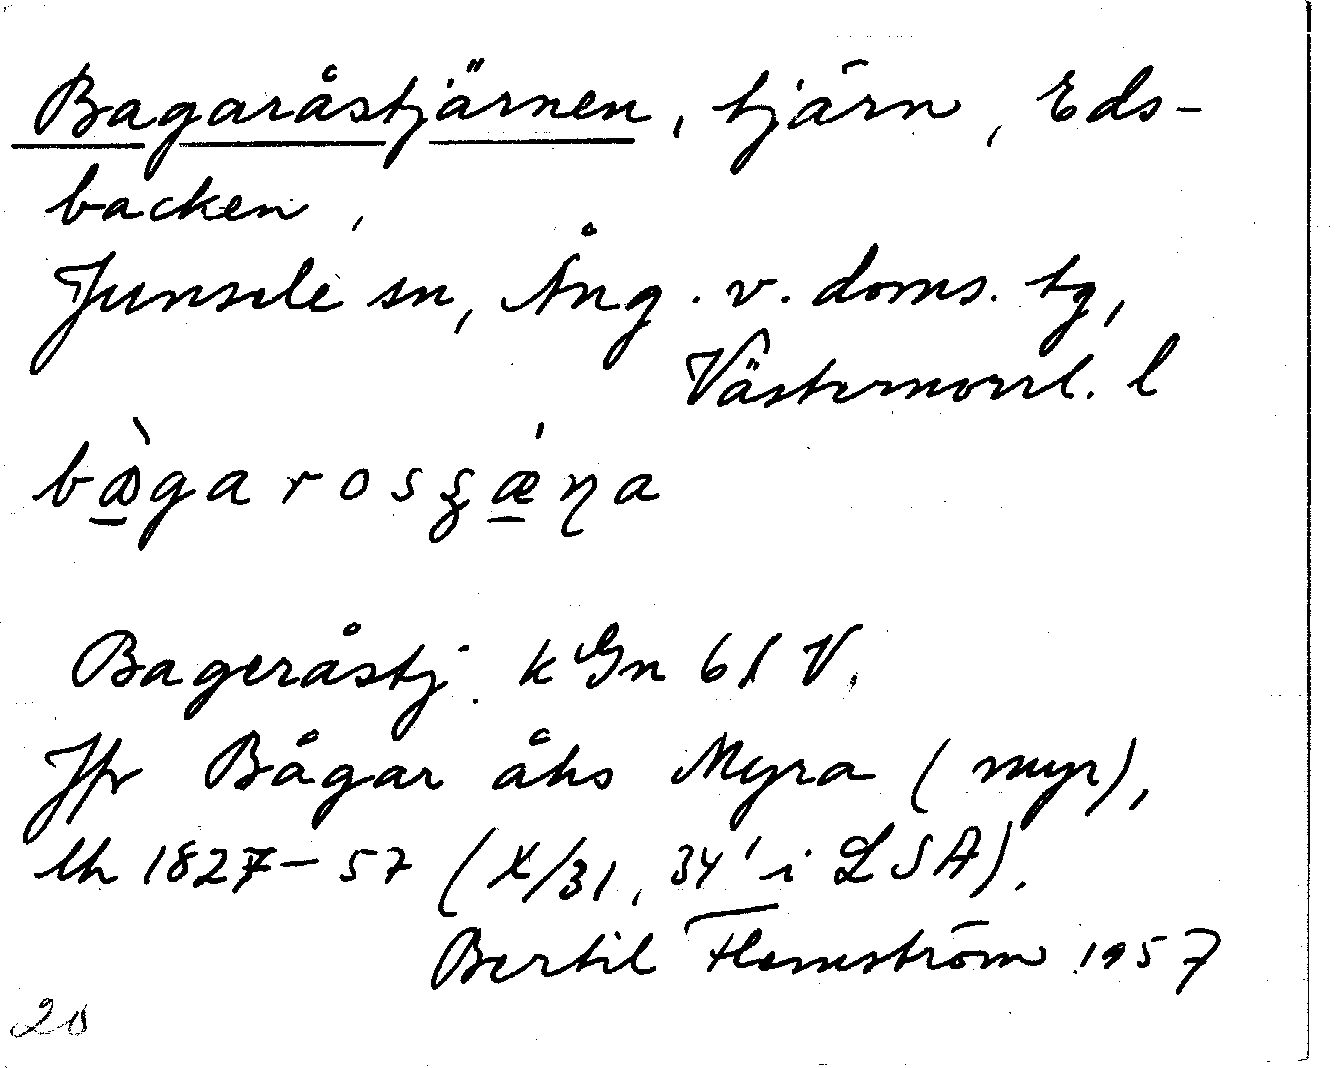 Bagaråstjärnen, tjärn, Eds-
backen,
Junsele sn, Ång. v. doms. tg,
Västernorrl. l
bàgarosʂǽŋa
Bageråstj. kGn 61 V.
Jfr Bågar åhs Myra (myr),
lh 1827-57 (X/31, 34 i LSA).
Bertil Flemström 1957
20